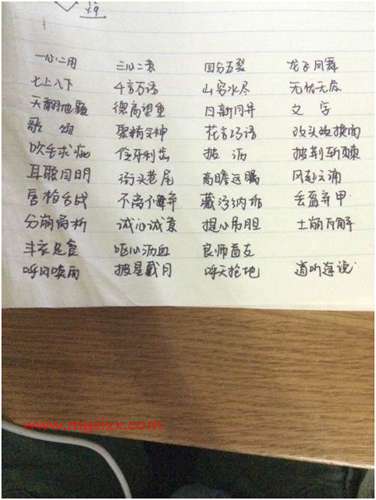 一心二用 三心二意 四分五裂 龙飞凤舞
七上八下 千言万语 山穷水尽 无忧无虑
天翻地覆 德高望重 日新月异 文字
歌颂 聚精会神 花言巧语 改头换面
吹毛求疵 伶牙利齿 披沥 披荆斩棘
耳聪目明 街头巷尾 高瞻远瞩 风起云涌
唇枪舌战 藏污纳垢 丢盔弃甲
分崩离析 诚心诚意 提心吊胆 土崩瓦解
丰衣足食 呕心沥血 良师益友
呼风唤雨 披星戴月 呼天抢地 道听途说